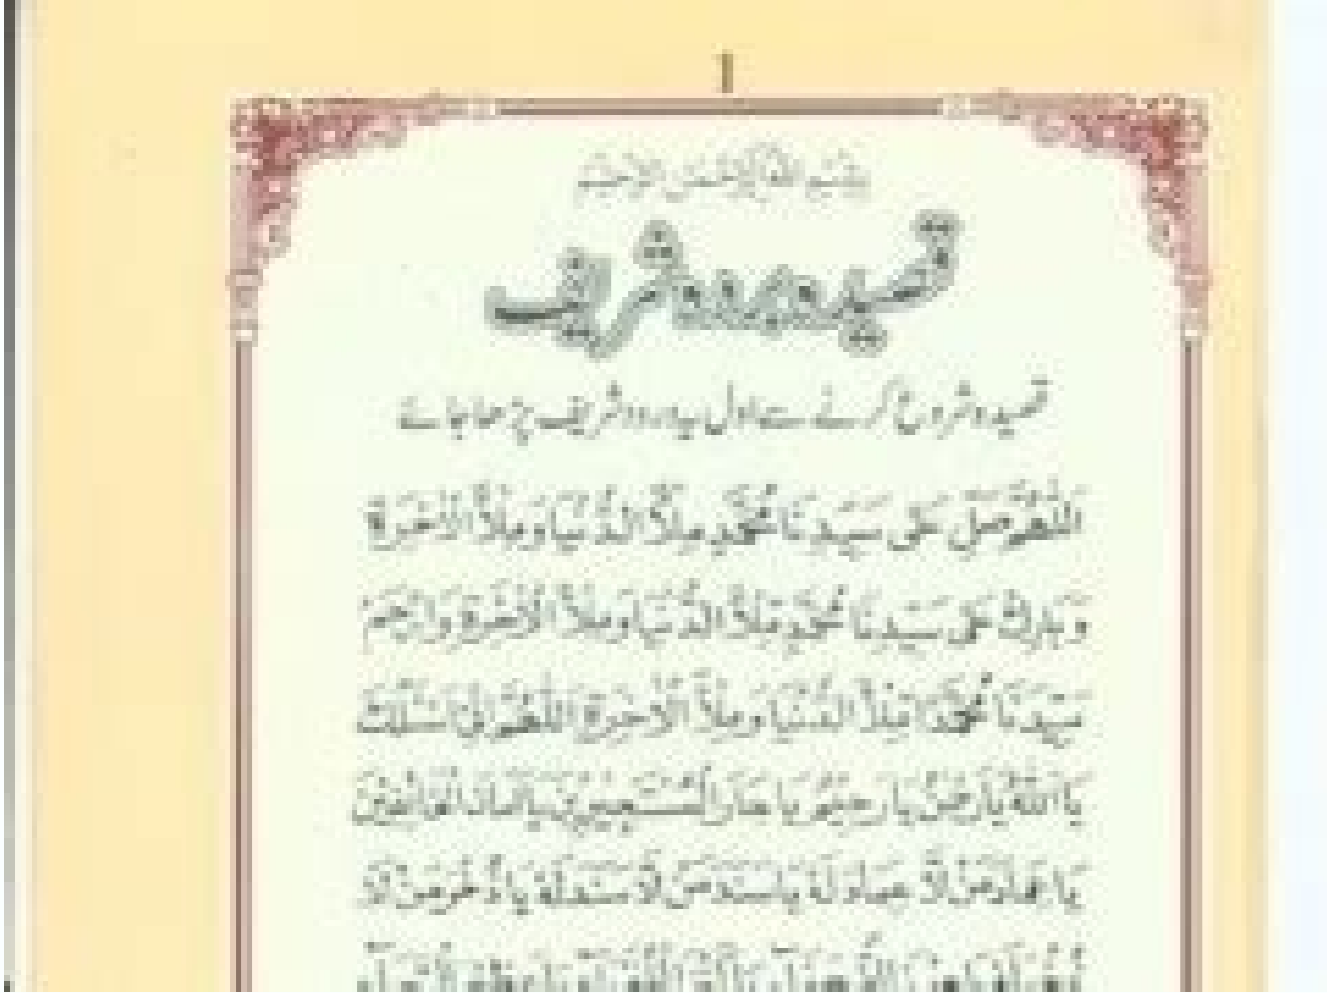 1
بِسْمِ اللهِ الرَّحْمٰنِ الرَّحِيْمِ
قصیدہ بردہ شریف
قصیدہ شروع کرنے سے اول یہ درود شریف پڑھا جائے
اَللّٰهُمَّ صَلِّ عَلٰى سَيِّدِنَا مُحَمَّدٍ مِلْأَ الدُّنْيَا وَمِلْأَ الْاٰخِرَةِ
وَبَارِكْ عَلٰى سَيِّدِنَا مُحَمَّدٍ مِلْأَ الدُّنْيَا وَمِلْأَ الْاٰخِرَةِ وَارْحَمْ
سَيِّدَنَا مُحَمَّدًا مِلْأَ الدُّنْيَا وَمِلْأَ الْاٰخِرَةِ اَللّٰهُمَّ اِنِّىْ اَسْئَلُكَ
يَا اَللّٰهُ يَا رَحْمٰنُ يَا رَحِيْمُ يَا جَارَ الْمُسْتَجِيْرِيْنَ يَا اَمَانَ الْخَائِفِيْنَ
يَا عِمَادَ مَنْ لَّا عِمَادَ لَهٗ يَا سَنَدَ مَنْ لَّا سَنَدَ لَهٗ يَا ذُخْرَ مَنْ لَّا